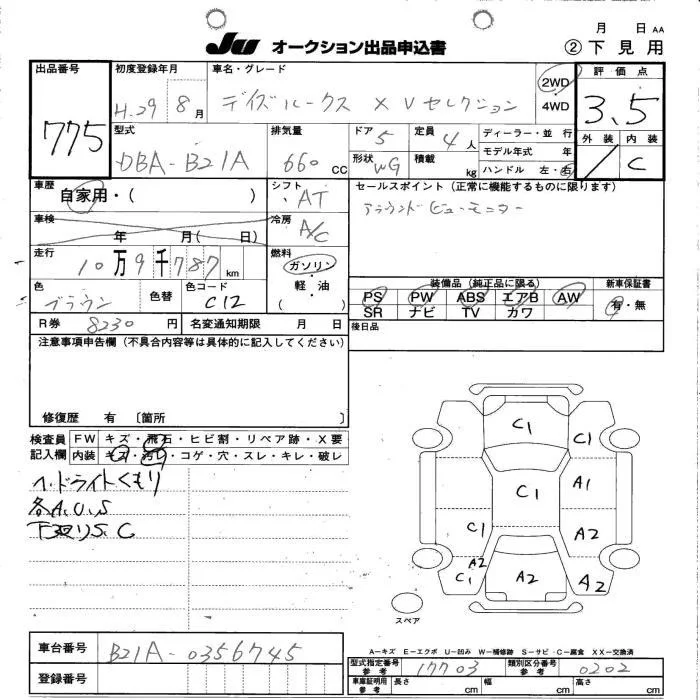 月 日 AA
Ju オークション出品申込書 ②下見用
出品番号 775
初度登録年月 H.29 8月
車名・グレード デイズルークス X Vセレクション
2WD
・
4WD
評価点 3.5
外装 内装
／ C
型式 DBA-B21A
排気量 660 CC
ドア 5
定員 4人
形状 WG
積載 kg
ディーラー・並行
モデル年式 年
ハンドル 左・右
車歴 自家用・( )
シフト AT
セールスポイント(正常に機能するものに限ります)
アラウンドビューモニター
車検 年 月( 日)
冷房 A/C
走行 10万9千787km
燃料 ガソリン・軽油
( )
色 ブラウン 色替
色コード C12
装備品(純正品に限る) 新車保証書
PS PW ABS エアB AW 有・無
SR ナビ TV カワ
R券 8230円 名変通知期限 月 日
後日品
注意事項申告欄(不具合内容等は具体的に記入してください)
修復歴 有 〔箇所 〕
検査員記入欄
FW キズ・飛石・ヒビ割・リペア跡・X要
内装 キズ・汚れ・コゲ・穴・スレ・キレ・破レ
ヘッドライトくもり
各A.U.S
下廻りS.C
C1
C1
C1
A1
C1
A2
A2
C1
A2
A2
スペア
車台番号 B21A-0356745
登録番号
A－キズ E－エクボ U－凹み W－補修跡 S－サビ・C－腐食 XX－交換済
型式指定番号参考 17703
類別区分番号参考 0202
車庫証明用参考 長さ cm 幅 cm 高さ cm